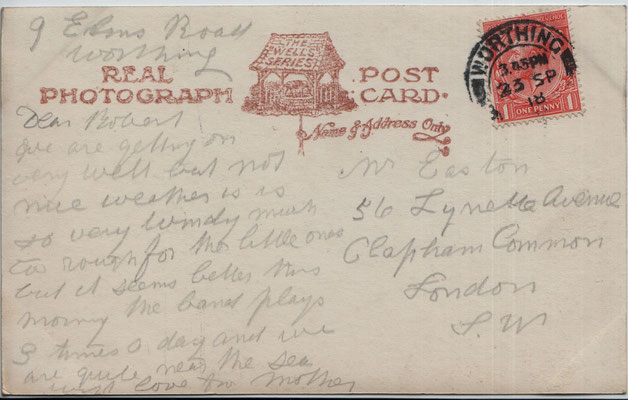 9 Elms Road
Worthing
THE
WELLS
SERIES
REAL
PHOTOGRAPH
POST
CARD.
Name & Address Only
REVENUE
ONE PENNY
WORTHING
3.45PM
23 SP
18
Dear Robert
we are getting on
very well but not
nice weather is is
so very windy much
too rough for the little ones
but it seems better this
morning the band plays
3 times a day and we
are quite near the sea
with love from mother
Mr Easton
56 Lynette Avenue
Clapham Common
London
S.W